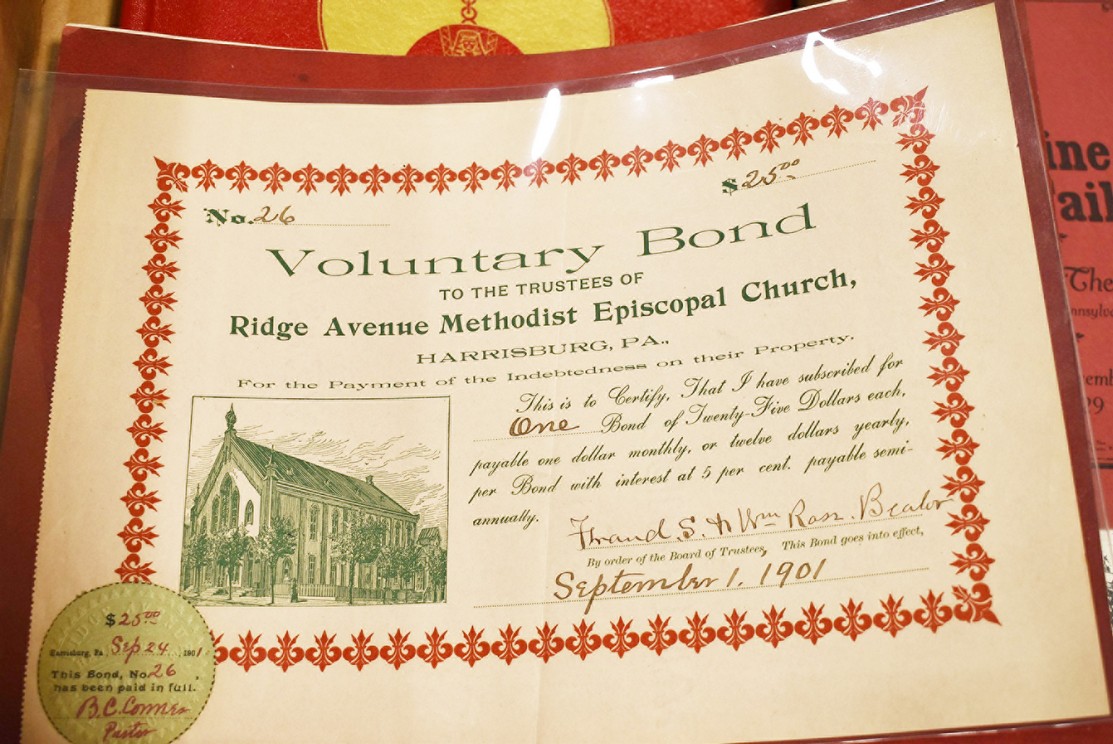 No. 26
$25.00
Voluntary Bond
TO THE TRUSTEES OF
Ridge Avenue Methodist Episcopal Church,
HARRISBURG, PA.,
For the Payment of the Indebtedness on their Property.
This is to Certify, That I have subscribed for
One Bond of Twenty-Five Dollars each,
payable one dollar monthly, or twelve dollars yearly,
per Bond with interest at 5 per cent. payable semi-
annually.
S. & Wm Ross.
By order of the Board of Trustees, This Bond goes into effect,
September 1. 1901
$25.00
Harrisburg, Pa., Sep 24, 1901
This Bond, No. 26,
has been paid in full.
B.C. Conner
Pastor
The